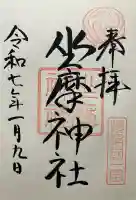 奉拝
坐摩神社
令和七年一月九日